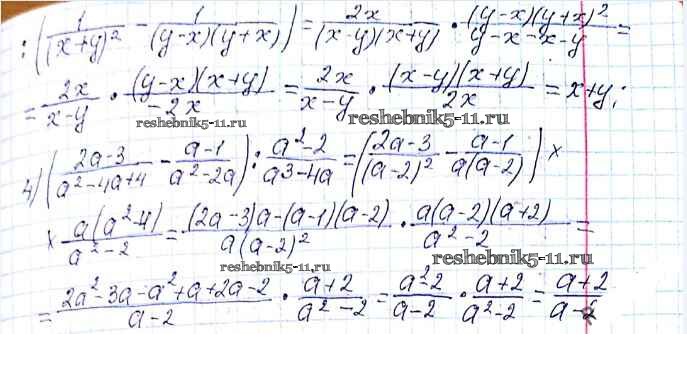 : (1/(x+y)² − 1/((y−x)(y+x))) = 2x/((x−y)(x+y)) · (y−x)(y+x)²/(y−x−x−y) =
= 2x/(x−y) · (y−x)(x+y)/(−2x) = 2x/(x−y) · (x−y)(x+y)/(2x) = x+y;
reshebnik5-11.ru reshebnik5-11.ru
4) ((2a−3)/(a²−4a+4) − (a−1)/(a²−2a)) : (a²−2)/(a³−4a) = ((2a−3)/(a−2)² − (a−1)/(a(a−2))) ×
× a(a²−4)/(a²−2) = ((2a−3)a−(a−1)(a−2))/(a(a−2)²) · a(a−2)(a+2)/(a²−2) =
reshebnik5-11.ru reshebnik5-11.ru
= (2a²−3a−a²+a+2a−2)/(a−2) · (a+2)/(a²−2) = (a²−2)/(a−2) · (a+2)/(a²−2) = (a+2)/(a−2)